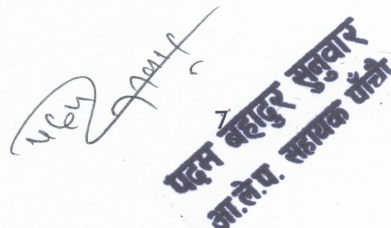 7
पदम बहादुर सुनुवार
आ.ले.प. सहायक पाँचौ